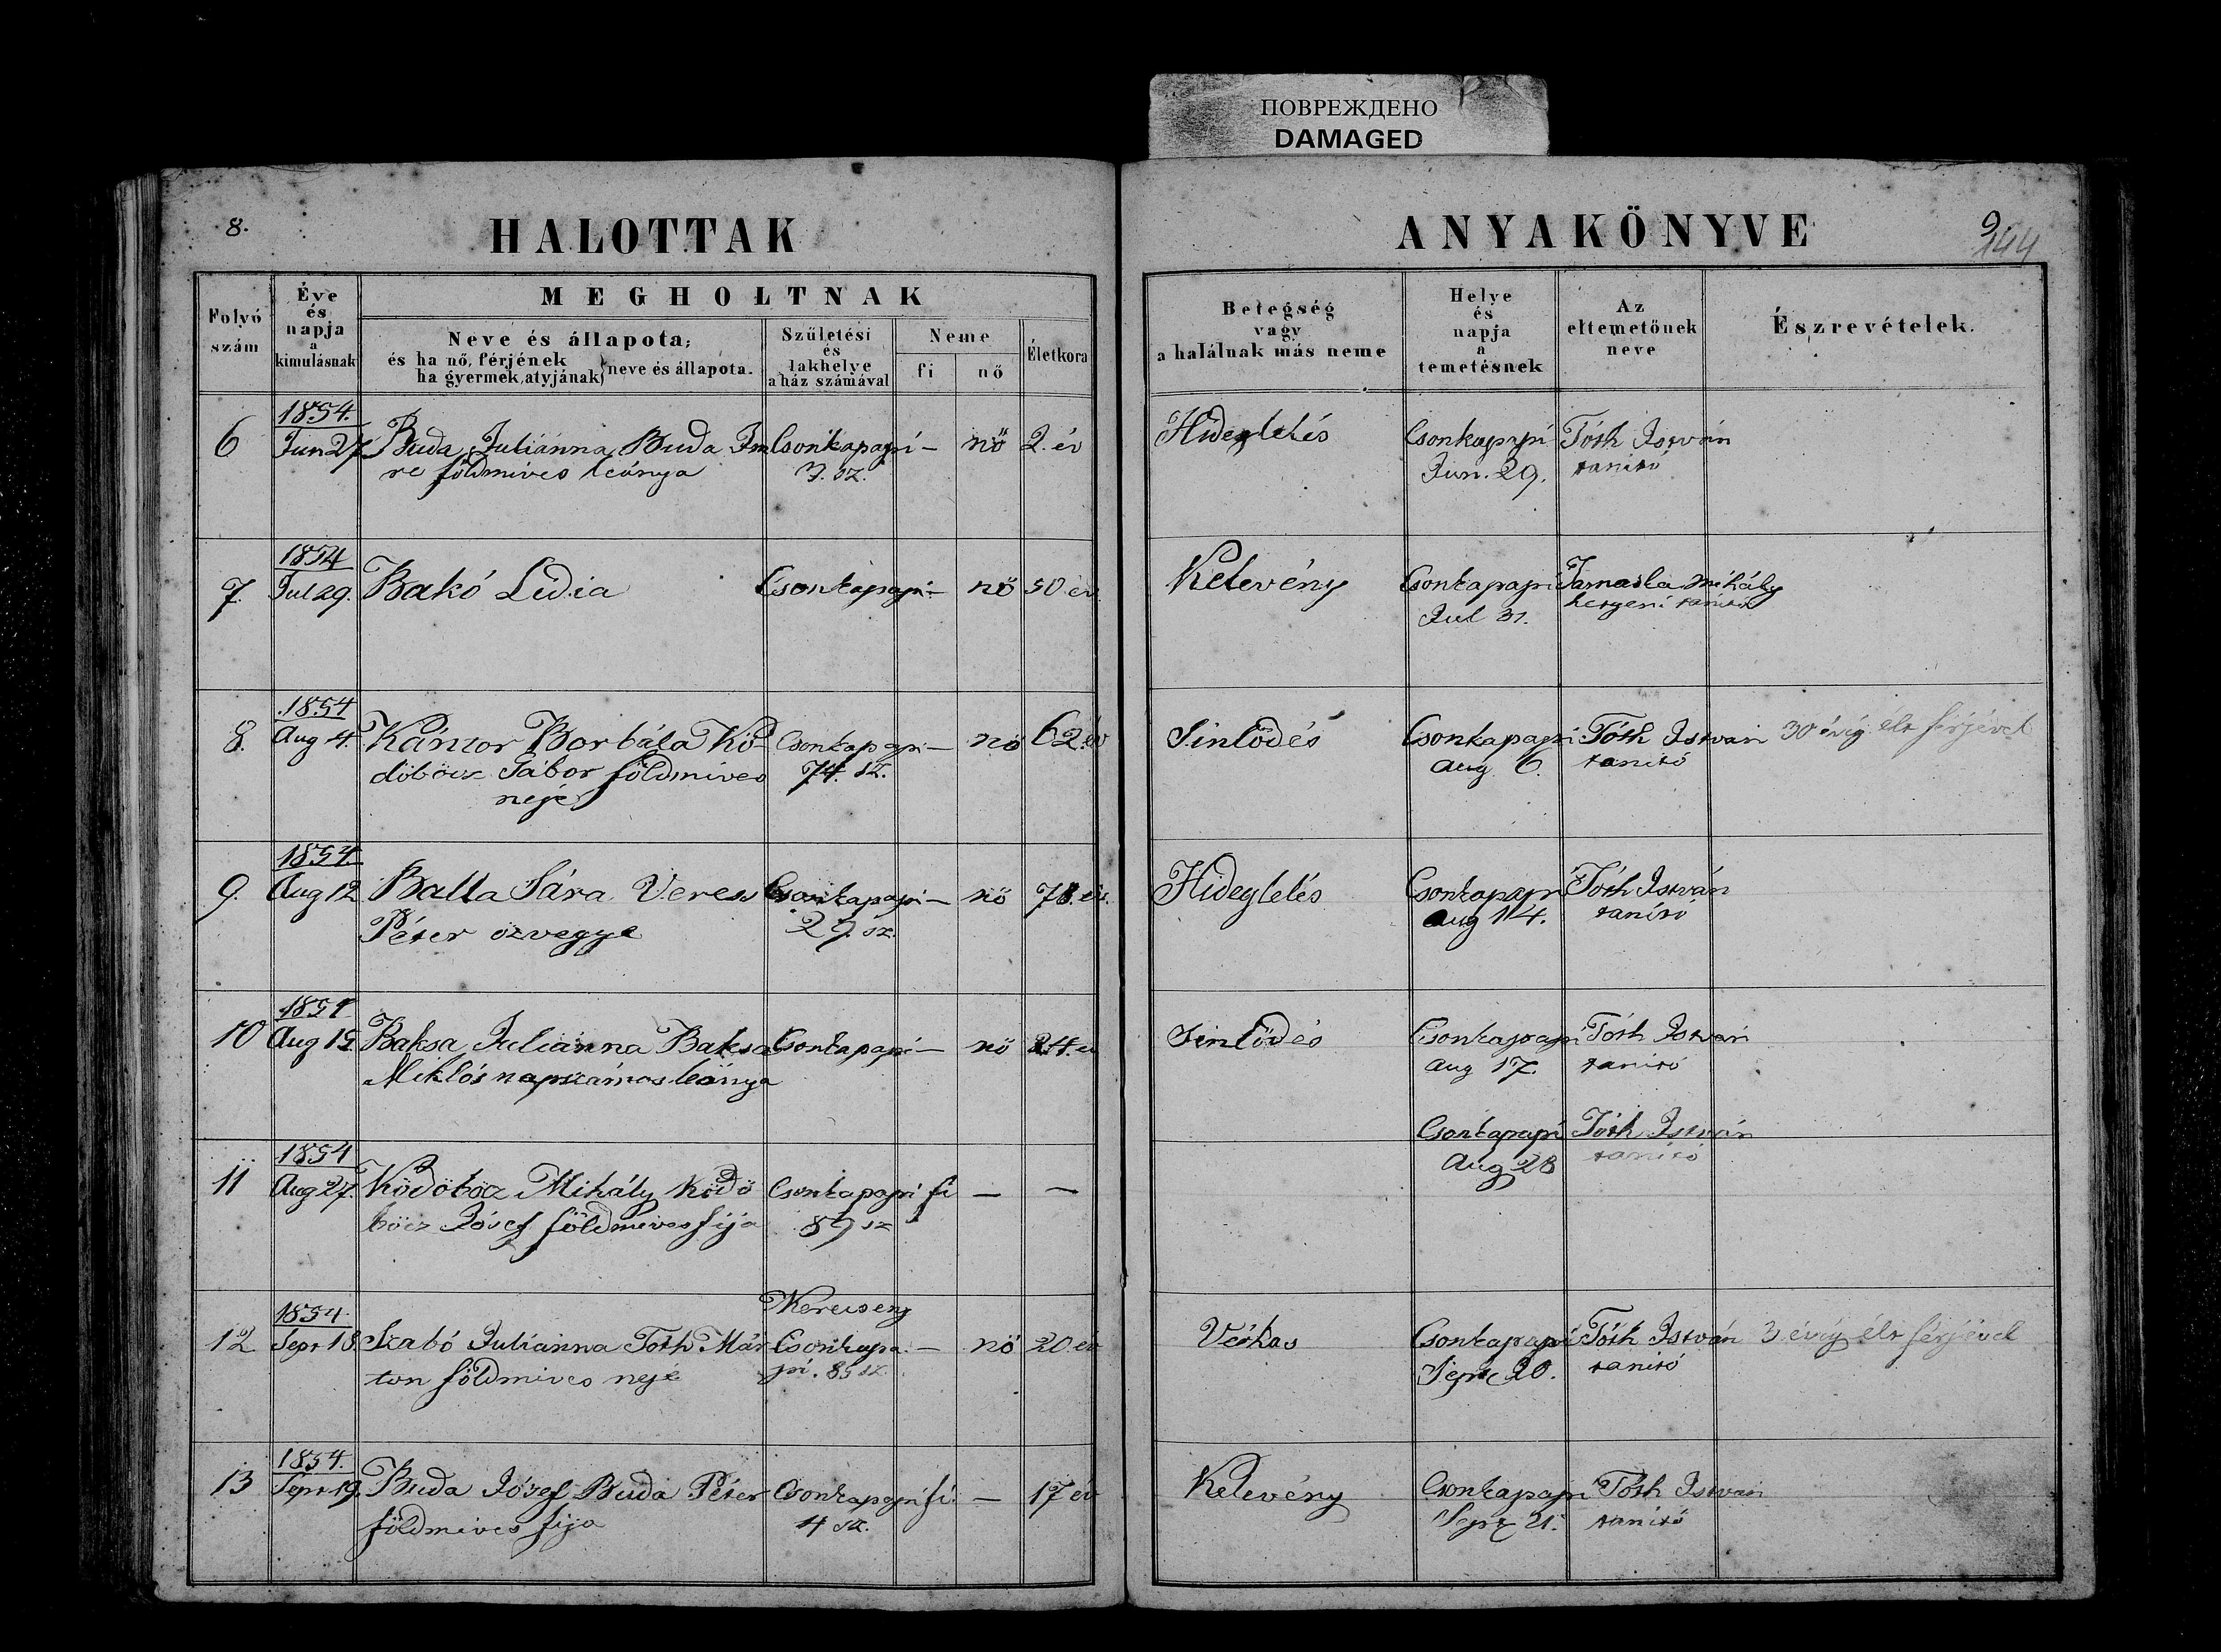 ПОВРЕЖДЕНО
DAMAGED
8.
HALOTTAK
ANYAKÖNYVE
9
144
Folyó szám
Éve és napja a kimulásnak
MEGHOLTNAK
Neve és állapota;
és ha nő, férjének
ha gyermek, atyjának) neve és állapota.
Születési és lakhelye a ház számával
Neme
fi
nő
Életkora
Betegség vagy a halálnak más neme
Helye és napja a temetésnek
Az eltemetőnek neve
Észrevételek.
1854.
6 Jun 27 Buda Juliánna, Buda Im Csonkapapi – nő 2. év Hideglelés Csonkapapi Tóth István
re földmives leánya 3. sz. Jun. 29. tanitó
1854
7. Jul 29. Bakó Lidia Csonkapapi – nő 50 év Kelevény Csonkapapi Mihály
Jul 31. tanitó
1854
8. Aug 4. Kántor Borbála Kö- Csonkapapi – nő 62 év Sinlődés Csonkapapi Tóth István 30 évig élt férjével
döböcz Gábor földmives 74. sz. Aug 6. tanitó
neje
1854.
9. Aug 12 Balla Sára Veress Csonkapapi – nő 78. év. Hideglelés Csonkapapi Tóth István
Péter özvegye 29. sz. Aug 14. tanitó
1854
10 Aug 15 Baksa Juliánna Baksa Csonkapapi – nő Sinlődés Csonkapapi Tóth István
Miklós napszámos leánya Aug 17. tanitó
1854 Csonkapapi Tóth István
11 Aug 27. Ködöböcz Mihály Ködö Csonkapapi fi – – Aug 28 tanitó
böcz Jósef földmives fija 89 sz
1854. Kerecseny
12 Sept 18. Szabó Juliánna Tóth Már Csonkapa – nő 20 év Vérhas Csonkapapi Tóth István 3 évig élt férjével
ton földmives neje pi. 85 sz. Sept 20. tanitó
1854.
13 Sept 19. Buda Jósef Buda Péter Csonkapapi fi. – 17 év Kelevény Csonkapapi Tóth István
földmives fija 4 sz. Sept 21. tanitó